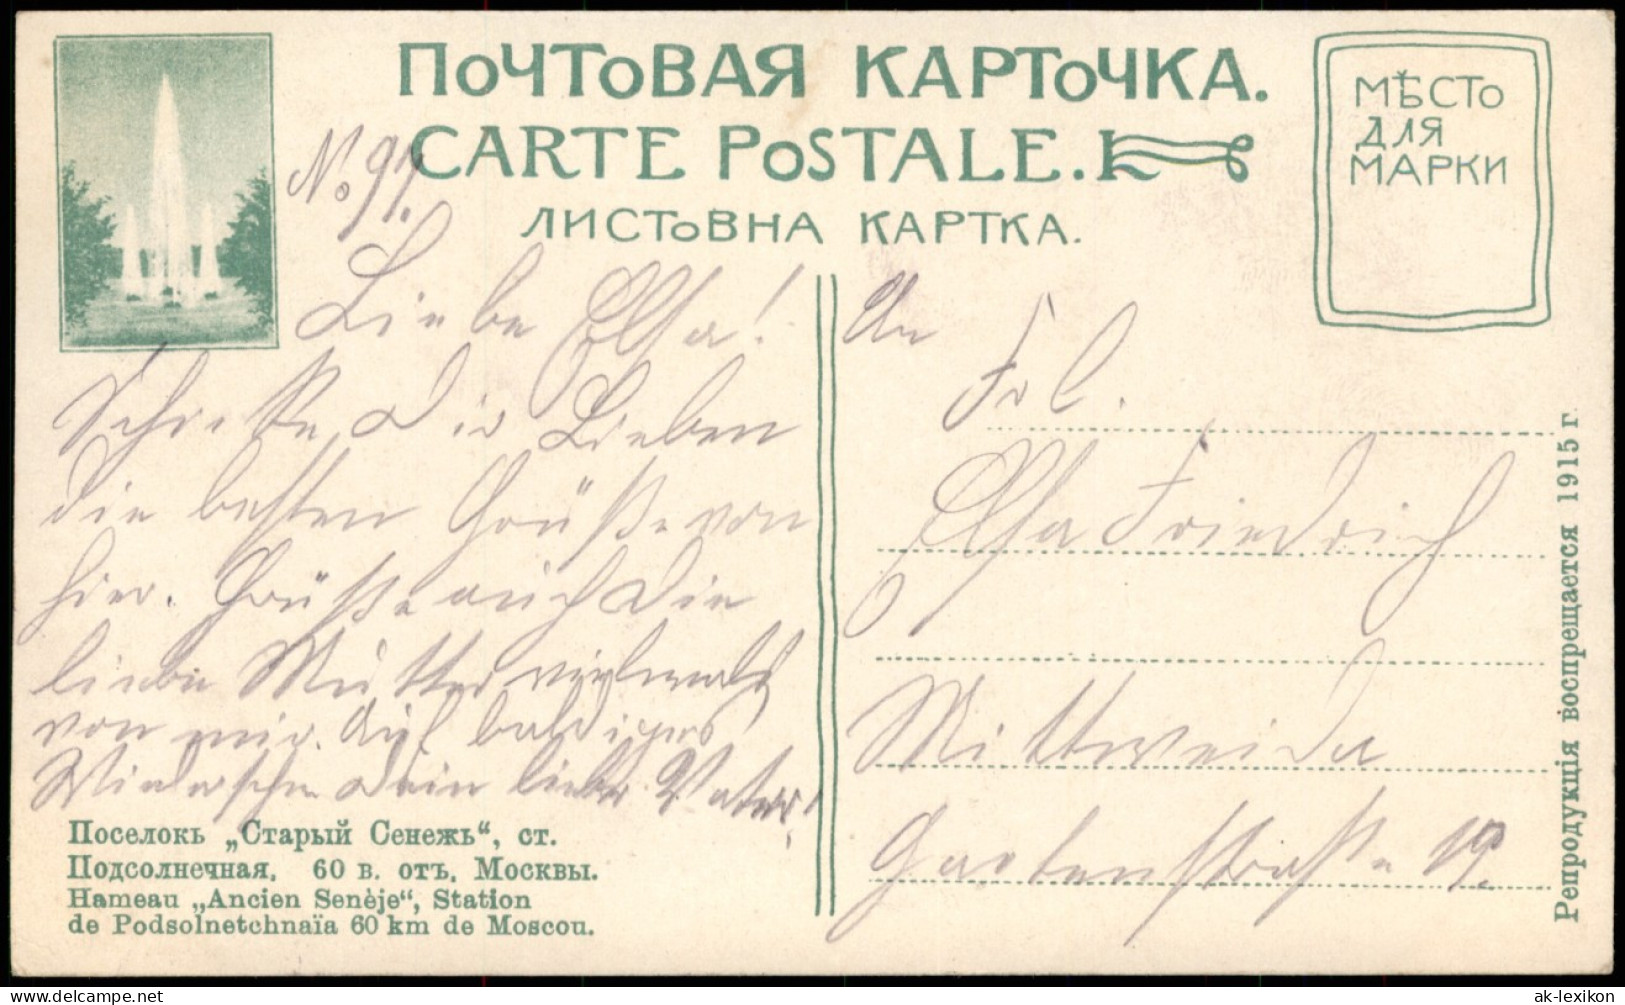 ПОЧТОВАЯ КАРТОЧКА.
CARTE POSTALE.
ЛИСТОВНА КАРТКА.
МѢСТО
ДЛЯ
МАРКИ
No. 91.
Liebe Elsa!
Schicke Dir Lieben
die besten Grüße von
hier. Grüße auch die
liebe Mutter vielmals
von mir. Auf baldiges
Wiedersehn Dein lieber Vater!
An
Frl.
Elsa Friedrich
Mittweida
Gartenstraße 19.
Поселокъ „Старый Сенежъ“, ст.
Подсолнечная, 60 в. отъ, Москвы.
Hameau „Ancien Senèje“, Station
de Podsolnetchnaïa 60 km de Moscou.
Репродукція воспрещается 1915 г.
ak-lexikon
delcampe.net